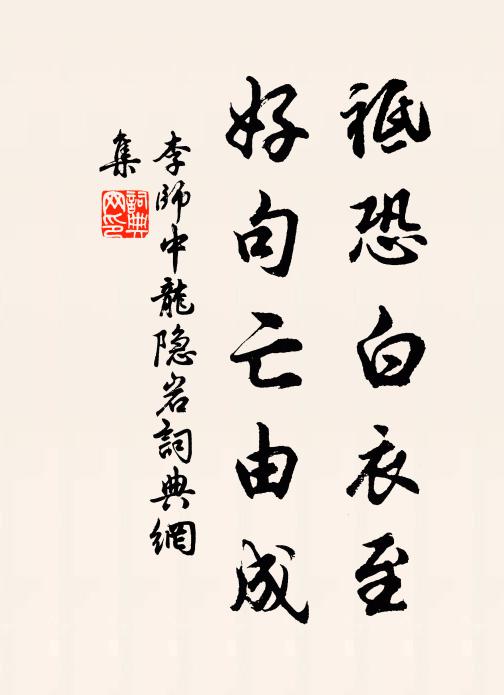 祗恐白衣至
好句亡由成
李師中龍隐岩詞典網
集
詞典
网印